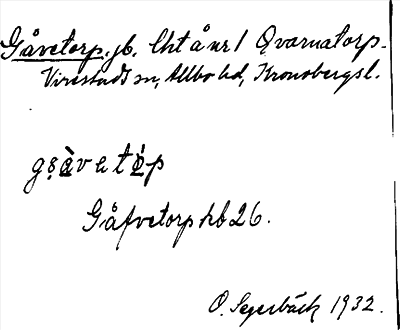 Gåvetorp, jb. Cht å nr 1 Qvarnatorp.
Virestads sn, Allbo hd, Kronobergs l.
Gåfvetorp hb 26.
O. Segerbäck 1932.